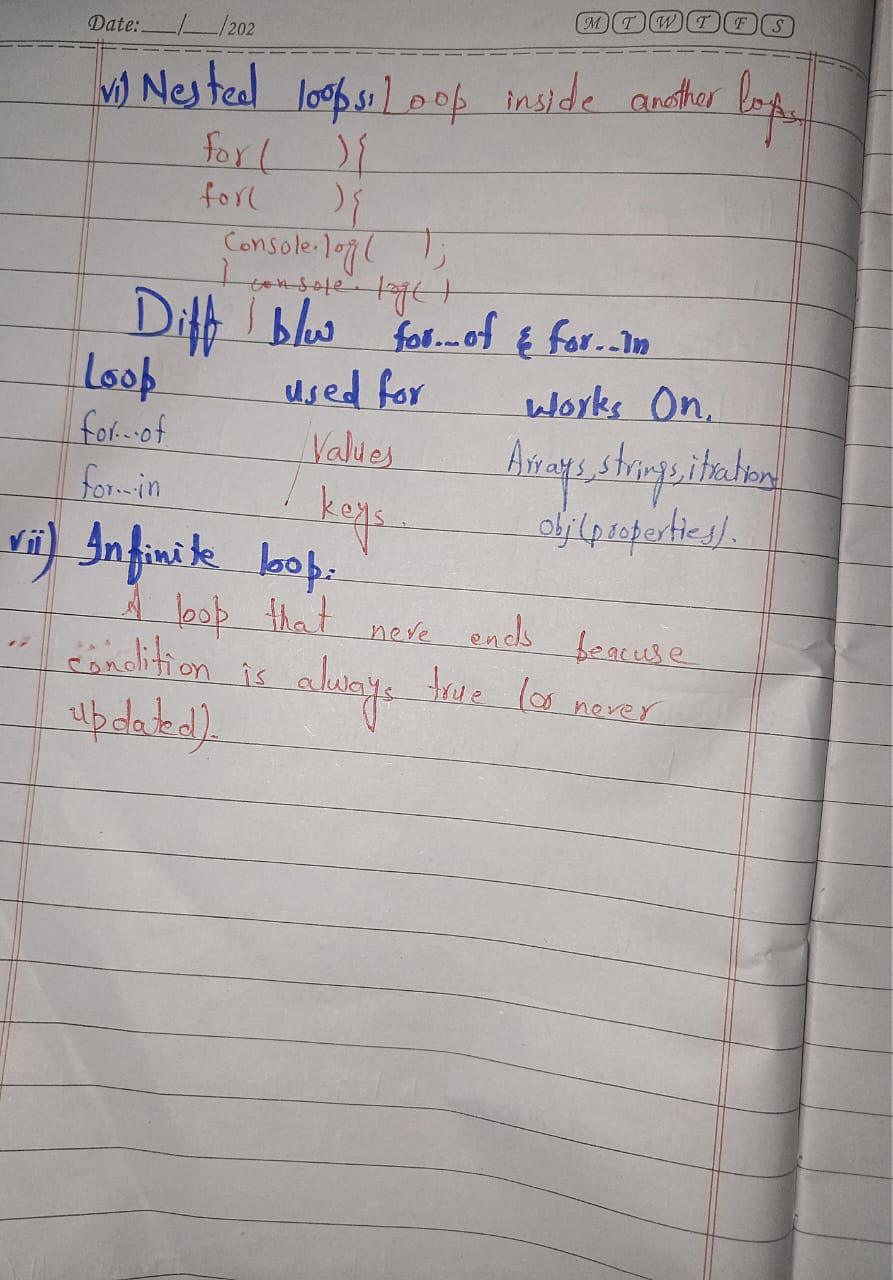 Date:__/__/202 M T W T F S
vi) Nested loops: Loop inside another loops.
for( ){
for( ){
Console.log( );
} console.log()
}
Diff b/w for...of & for...in
Loop used for works On.
for...of Values Arrays, strings, itration
for...in keys. obj(properties).
vii) Infinite loop:
A loop that neve ends beacuse
condition is always true (or never
updated).